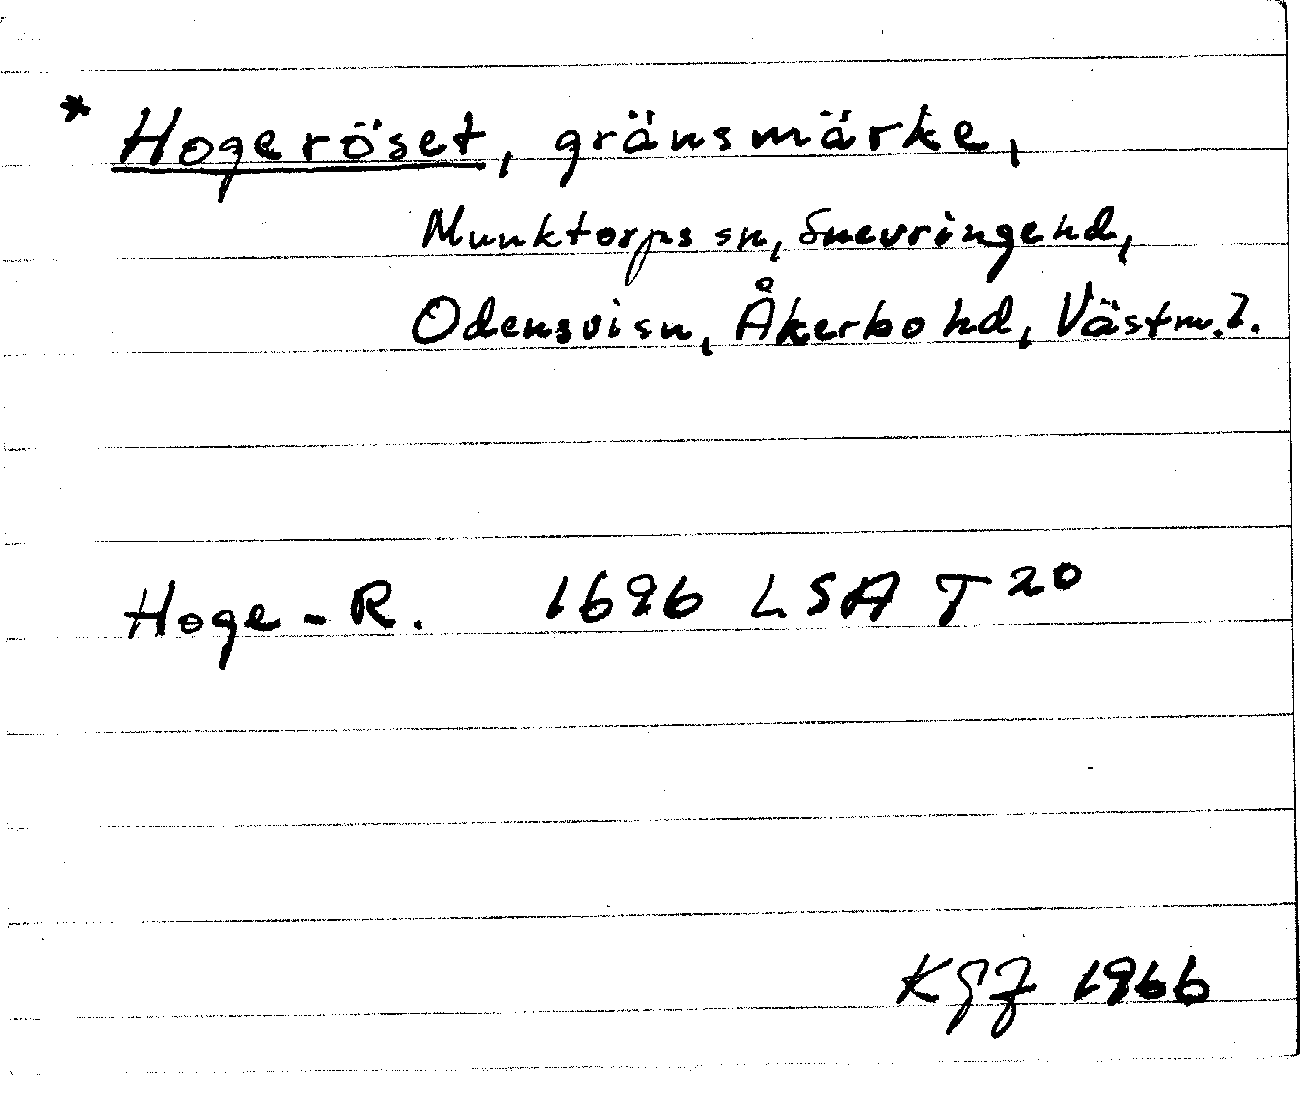 * Hogeröset, gränsmärke,
Munktorps sn, Snevringe hd,
Odensvi sn, Åkerbo hd, Västm. l.
Hoge-R. 1696 LSA T 20
KGJ 1966